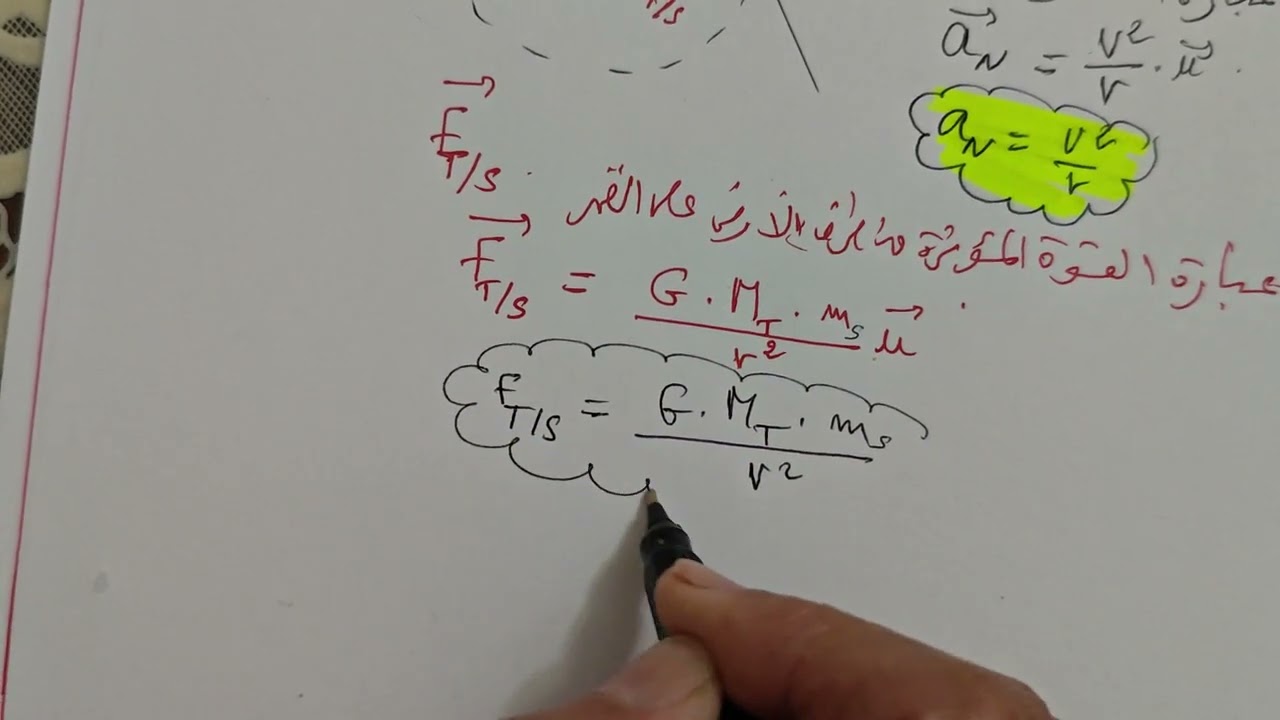 T/S
a⃗_N = v²/r . u⃗ .
a_N = v²/r
F⃗_T/S .
عبارة القوة المؤثرة من طرف الأرض على القمر
F⃗_T/S = G . M_T . m_s / r² u⃗ .
F_T/S = G . M_T . m_s / r²